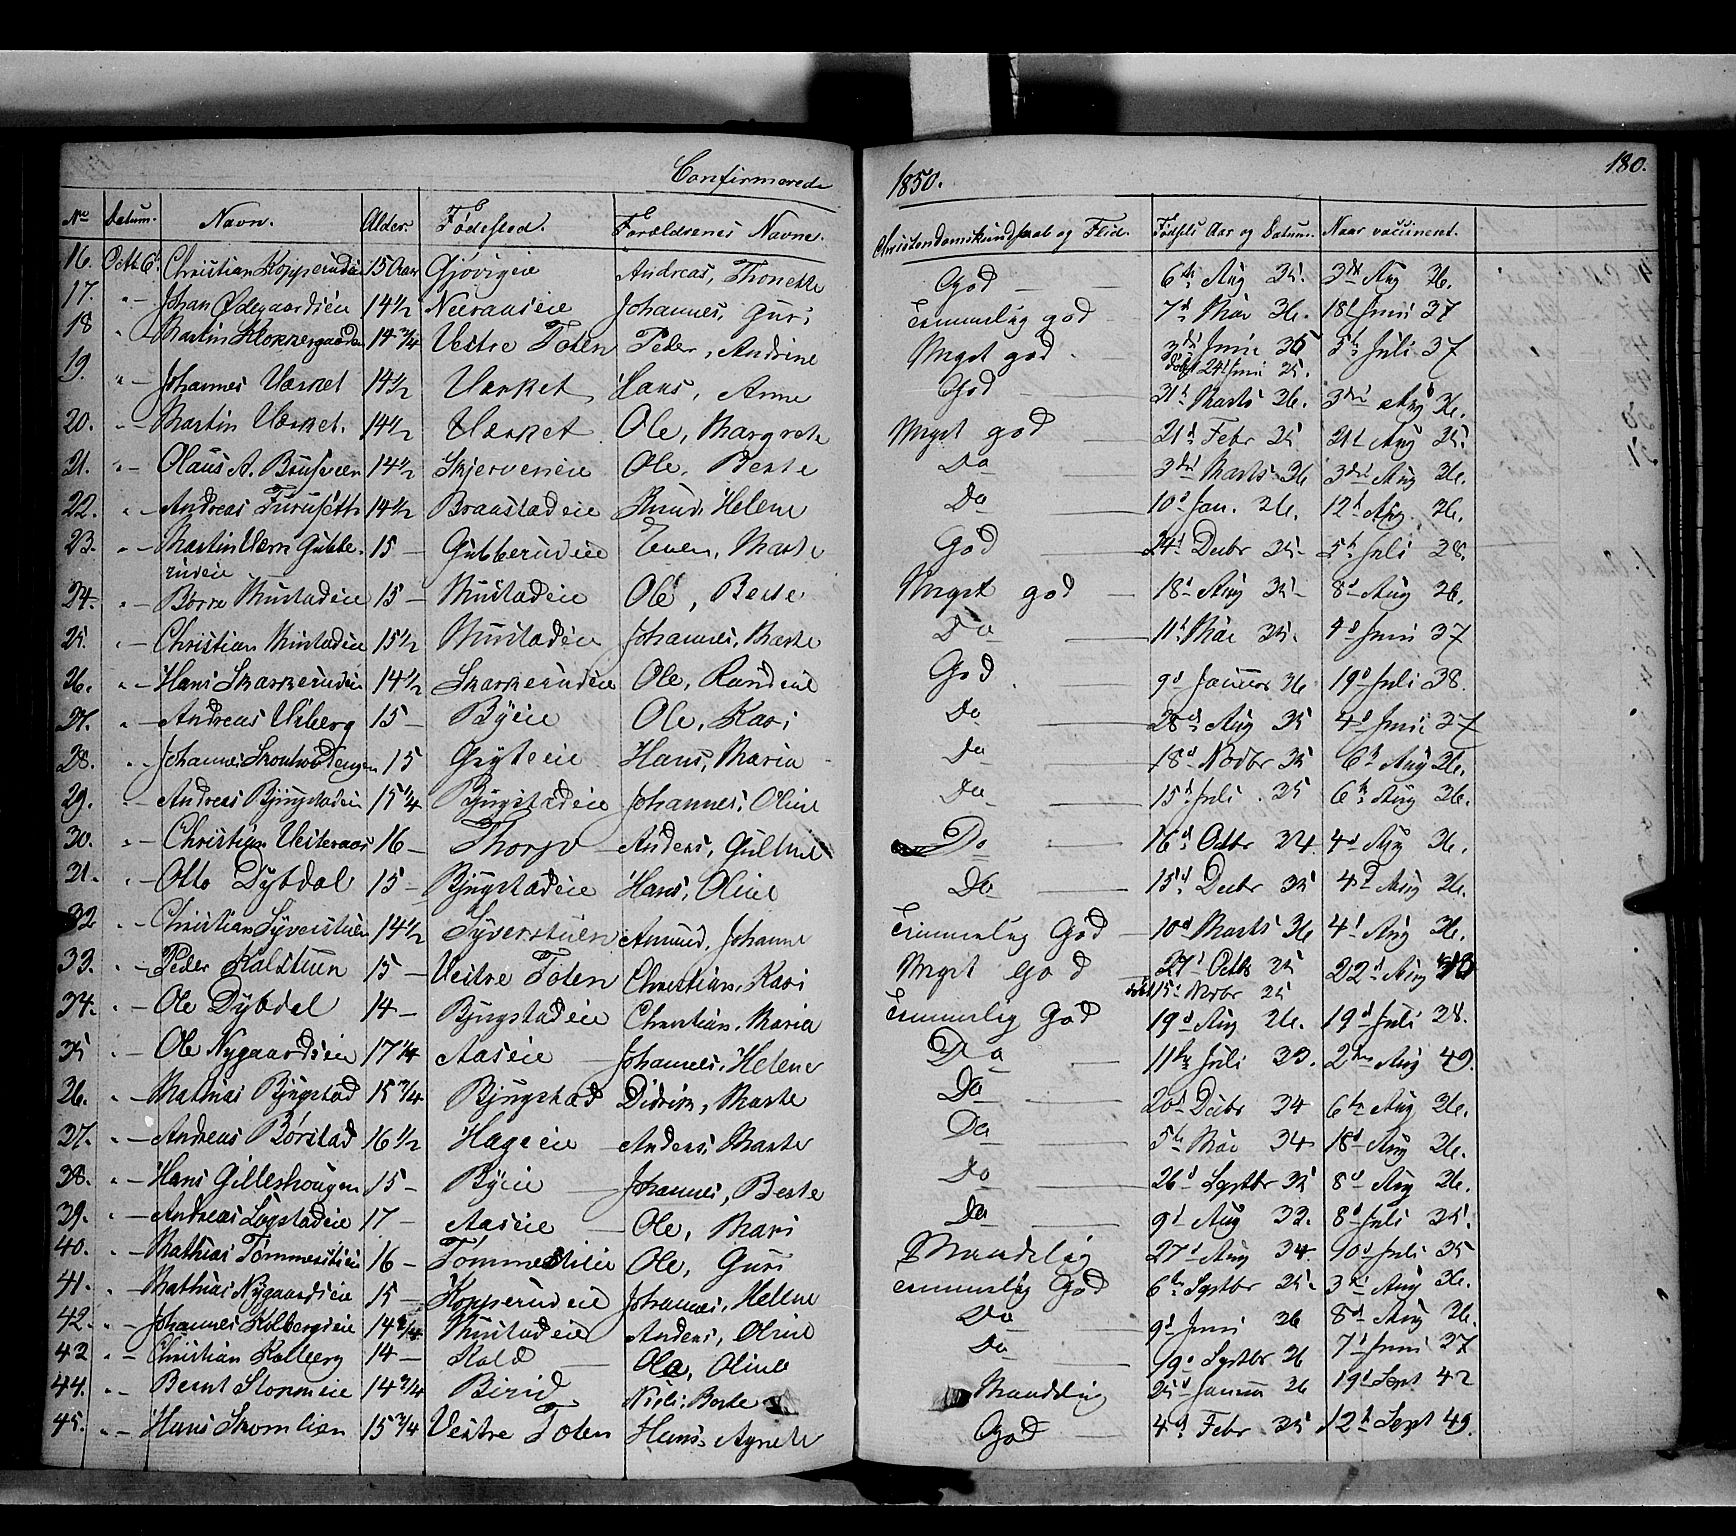 Confirmerede 1850. 180.
No Datum. Navn. Alder. Fødested. Forældrenes Navne. Christendomskundskab og Flid. Fødsels Aar og Datum. Naar vaccineret.
16. Octb 6t Christian Kopperudeie 15 Aar Gjøvigeie Andreas, Thonette God 6te Aug 35 3die Aug 36.
17. " Johan Ødegaardseie 14 1/2 Neeraaseie Johannes, Guri Temmelig god 7d Mai 36. 18d Juni 37
18 " Martin Klokkergaarden 14 3/4 Vestre Toten Peder, Andrine Meget god 3die Juni 35 5te Juli 37
døbt 24d Juni 35.
19. " Johannes Værket 14 1/2 Værket Hans, Anne God 31d Marts 36. 3die Aug 36.
20. " Martin Værket. 14 1/2 Værket Ole, Margrete Meget god 21d Febr 35 21d Aug 35
21. " Olaus A. 14 1/2 Skjerveneie Ole, Berte Do 3die Marts 36 3die Aug 36.
22. " Andreas Furuseth 14 1/2 Braastadeie Knud, Helene Do 10d Jan. 36. 12d Aug. 36.
23. " Martin Gubbe- 15 Gubberudeie Even, Marte God 24d Decbr 35 5te Juli 38.
rudeie
24. " Børre Mustadeie 15 Mustadeie Ole, Berte Meget god 18d Aug 35 8d Aug 36.
25. " Christian Mustadeie 15 1/2 Mustadeie Johannes, Marte Do 11t Mai 35. 4d Juni 37
26. " Hans Skarkerudeie 14 1/2 Skarkerudeie Ole, Randine God 9d Januar 36. 19d Juli 38.
27. " Andreas Viberg 15 Byeie Ole, Kari Do 28d Aug 35 4d Juni 37
28. " Johannes 15 Gryteeie Hans, Maria Do 18d Novbr 35 6te Aug 36.
29. " Andreas Bjugstadeie 15 1/4 Bjugstadeie Johannes, Oline Do 15d Juli 35 6te Aug 36.
30. " Christian Vesteraas 16 Thorp Anders, Gulline Do 16d Octbr 34. 4d Aug 36.
31. " Otto Dybdal 15 Bjugstadeie Hans, Oline Do 15d Decbr 35 4d Aug 36.
32 " Christian Syverstuen 14 1/2 Syverstuen Amund, Johanne Temmelig God 10d Marts 36 4d Aug 36.
33. " Peder Kalstuen 15 Vestre Toten Christian, Kari Meget god 27d Octbr 35 22d Aug 38
døbt 15d Novbr 35
34. " Ole Dybdal 14 Bjugstadeie Christian, Maria Temmelig God 19d Aug 36. 19d Juli 38.
35 " Ole Nygaardseie 17 1/4 Aaseie Johannes, Helene Do 11te Juli 33. 2den Aug 49.
36. " Mathias Bjugstad 15 3/4 Bjugstad Didrik, Marte Do 20d Decbr 34 6te Aug 36.
37. " Andreas Børstad 16 1/2 Hageeie Anders, Marte Do 5te Mai 34 18d Aug 36.
38. " Hans Gilleshougen 15 Byeie Johannes, Berte Do 26d Septbr 35 8d Aug 36.
39. " Andreas Løgstadeie 17 Aaseie Ole, Mari Do 9d Aug 33. 8d Juli 35.
40. " Mathias Tømmerstieie 16 Tømmerstieie Ole, Guri Maadelig 27d Aug 34. 10d Juli 35
41. " Mathias Nygaardseie 15 Kopperudeie Johannes, Helene Temmelig God 6te Septbr 35. 3die Aug 36.
42. " Johannes Kolbergseie 14 3/4 Mustadeie Anders, Oline Do 9d Juni 36 8d Aug 36.
43 " Christian Kolberg 14 Kold Ole, Oline Do 19d Septbr 36 7d Juni 37
44. " Bernt 14 3/4 Birid Niels, Berte Maadelig 25d Januar 36 19d Sept 42
45. " Hans Skomlien 15 3/4 Vestre Toten Hans, Agnete God 4d Febr 35 12te Sept 49.